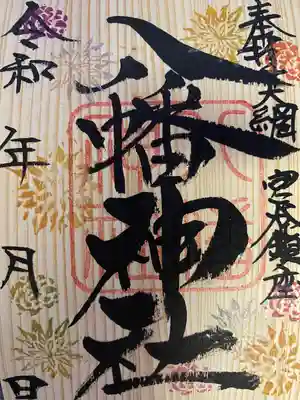 奉拝 大網 宮谷鎮座
八幡神社
令和 年 月 日